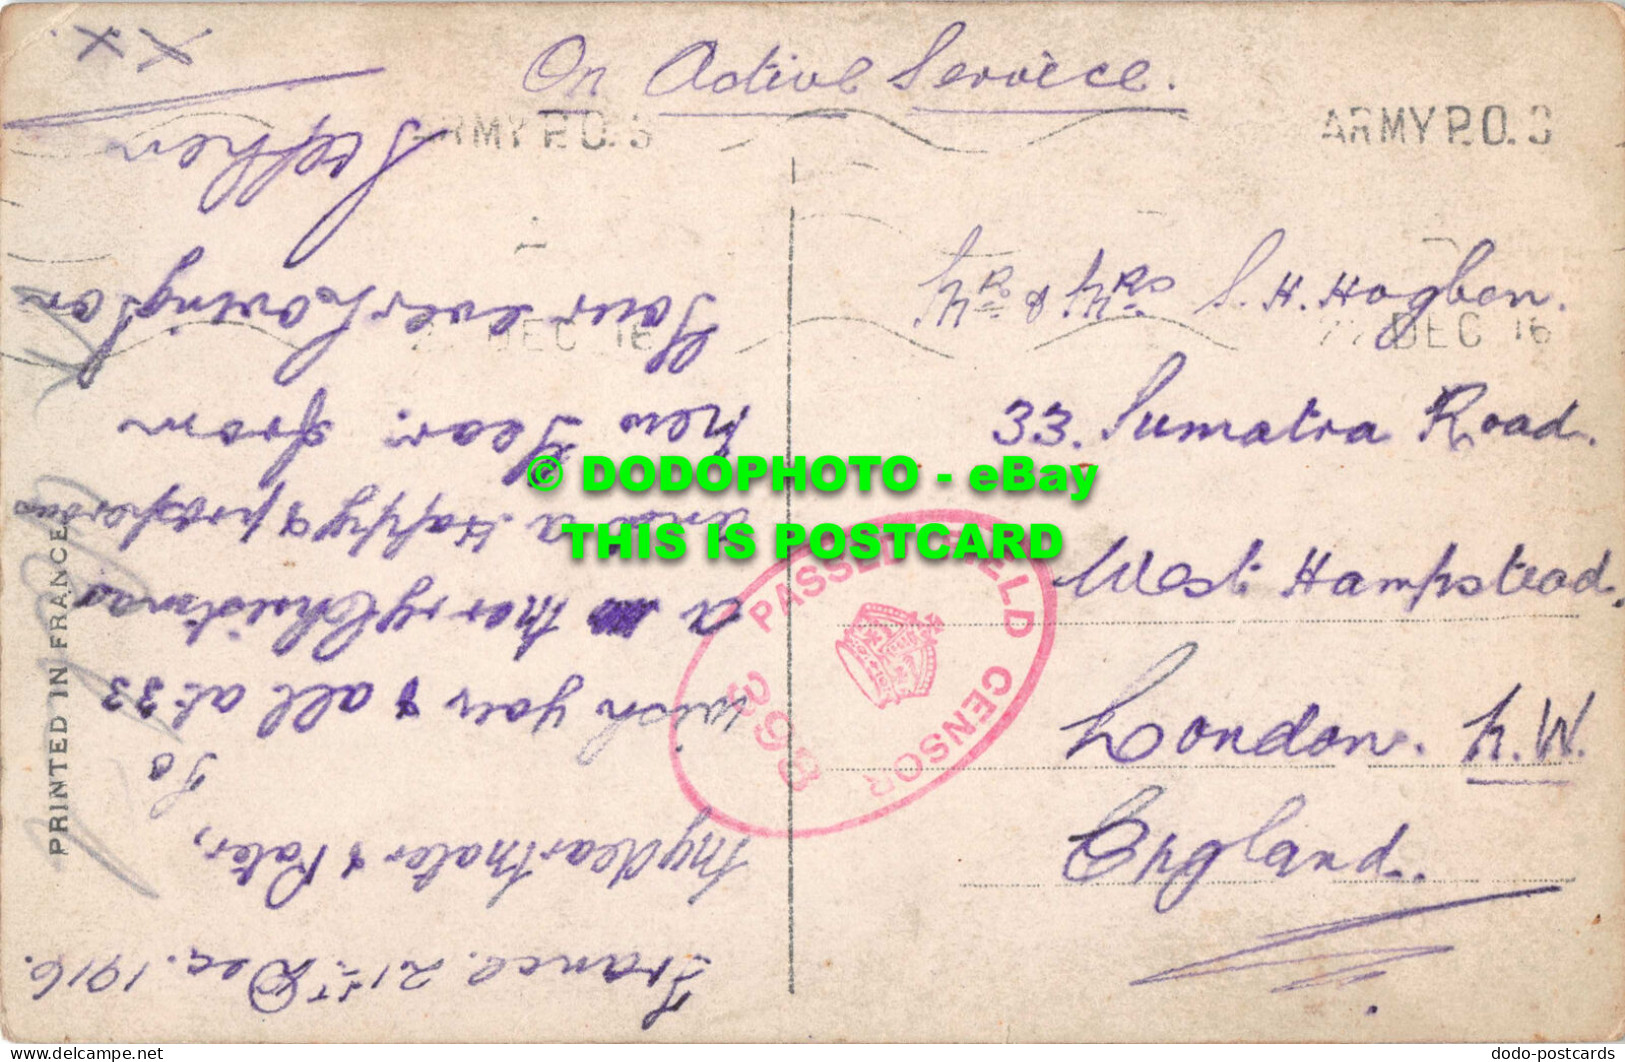 On Active Service.
ARMY P.O. 3
ARMY P.O. 3
DEC 16
22 DEC 16
Mr. & Mrs S. H. Hogben.
33. Sumatra Road.
West Hampstead.
London. N.W.
England.
PASSED FIELD CENSOR
PRINTED IN FRANCE
France. 21st Dec. 1916.
My dear Mater & Pater,
To
wish you & all at 33
a merry Christmas
and a Happy & prosperous
New Year. from
Your ever loving Son
Stephen
X X.
© DODOPHOTO - eBay
THIS IS POSTCARD
www.delcampe.net
dodo-postcards